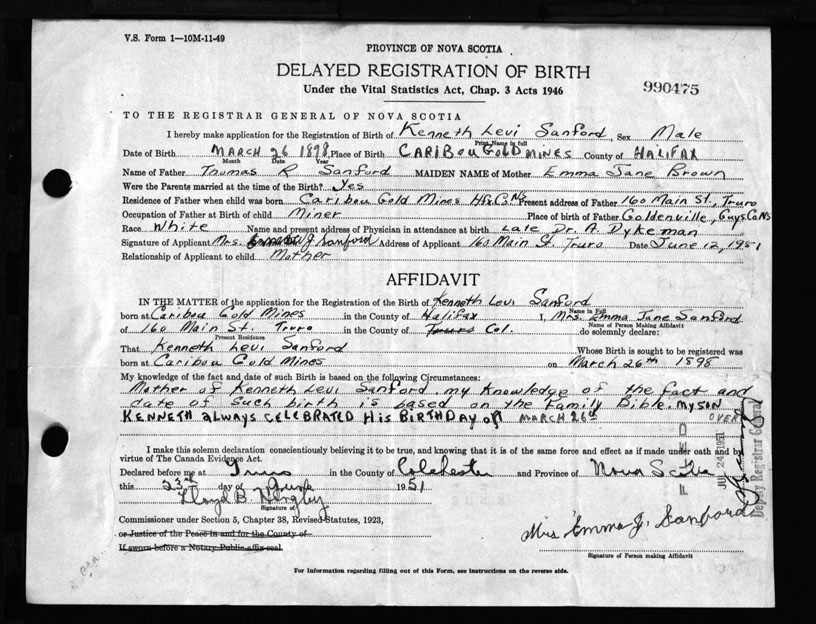 V.S. Form 1—10M-11-49
PROVINCE OF NOVA SCOTIA
DELAYED REGISTRATION OF BIRTH
Under the Vital Statistics Act, Chap. 3 Acts 1946
990475
TO THE REGISTRAR GENERAL OF NOVA SCOTIA
I hereby make application for the Registration of Birth of Kenneth Levi Sanford, Sex Male
Print Name in full
Date of Birth MARCH 26 1898, Place of Birth CARIBOU GOLD MINES County of HALIFAX
Month Date Year
Name of Father Thomas R Sanford MAIDEN NAME of Mother Emma Jane Brown
Were the Parents married at the time of the Birth? Yes
Residence of Father when child was born Caribou Gold Mines Hfx. Co. NS Present address of Father 160 Main St., Truro
Occupation of Father at Birth of child Miner Place of birth of Father Goldenville, Guys Co NS
Race White Name and present address of Physician in attendance at birth Late Dr. A. Dykeman
Signature of Applicant Mrs. J Sanford Address of Applicant 160 Main St. Truro Date June 12, 1951
Relationship of Applicant to child Mother
AFFIDAVIT
IN THE MATTER of the application for the Registration of the Birth of Kenneth Levi Sanford
Name in Full
born at Caribou Gold Mines in the County of Halifax I, Mrs. Emma Jane Sanford
Name of Person Making Affidavit
of 160 Main St. Truro in the County of Truro Col. do solemnly declare:
Present Residence
That Kenneth Levi Sanford Whose Birth is sought to be registered was
born at Caribou Gold Mines on March 26th 1898
My knowledge of the fact and date of such Birth is based on the following Circumstances:
Mother of Kenneth Levi Sanford. my knowledge of the fact and
date of such birth is based on the Family Bible. MY SON
KENNETH ALWAYS CELEBRATED HIS BIRTHDAY ON MARCH 26th OVER
I make this solemn declaration conscientiously believing it to be true, and knowing that it is of the same force and effect as if made under oath and by
virtue of The Canada Evidence Act.
Declared before me at Truro in the County of Colchester and Province of Nova Scotia
this 23rd day of June 1951
Signature of
Commissioner under Section 5, Chapter 38, Revised Statutes, 1923,
or Justice of the Peace in and for the County of
If sworn before a Notary Public affix seal.
Mrs Emma J. Sanford
Signature of Person making Affidavit
JUL 24 1951
Deputy Registrar General
For Information regarding filling out of this Form, see instructions on the reverse side.